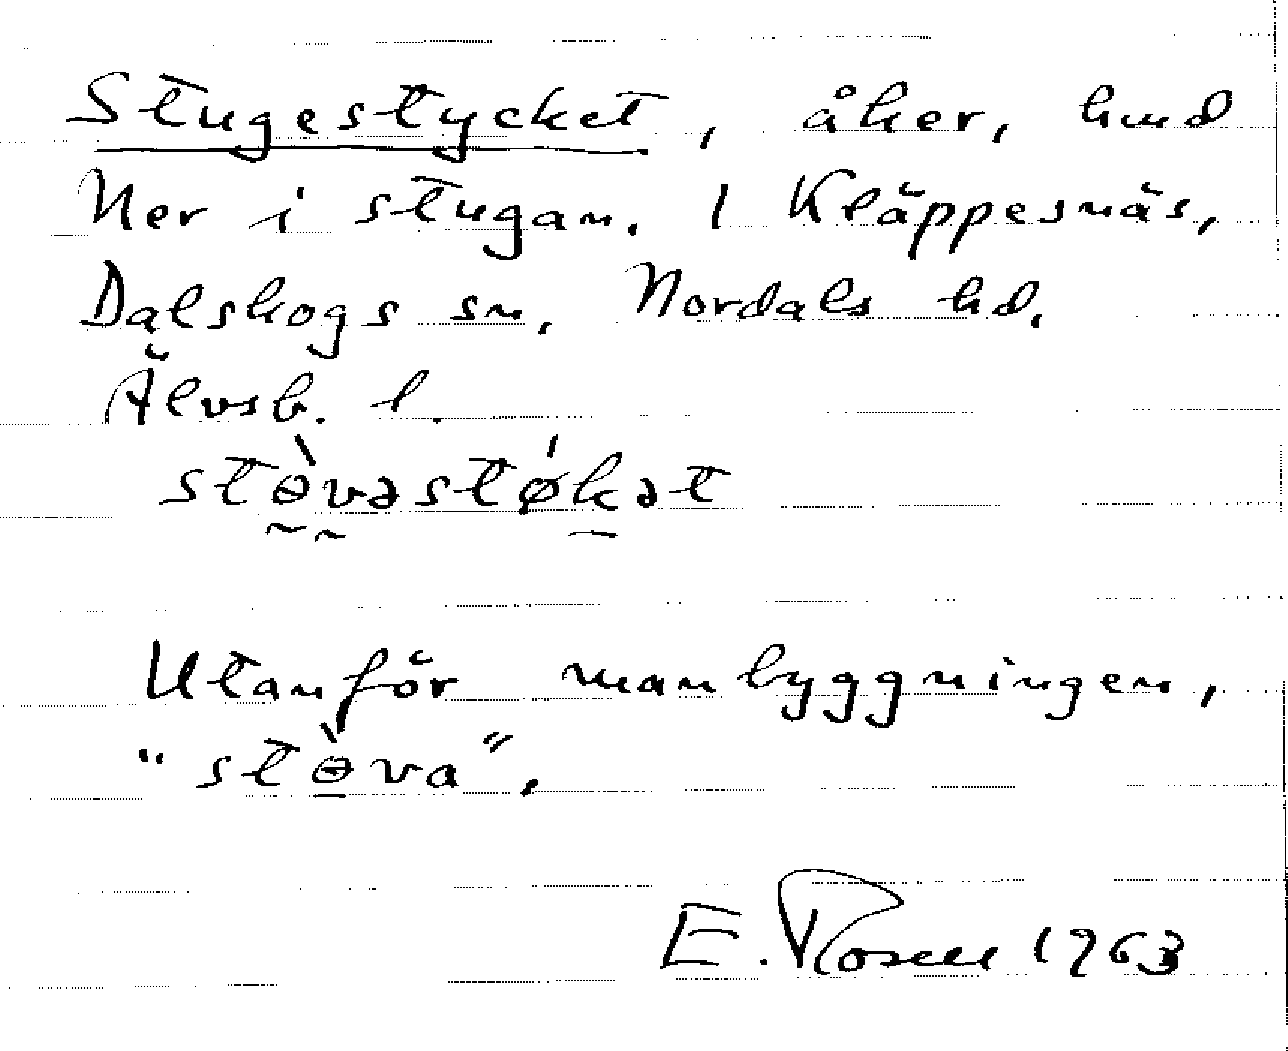 Stugestycket, åker, hmd
Ner i stugan. 1 Kläppesnäs,
Dalskogs sn. Nordals hd.
Älvsb. l.
stɵ̀vəstǿkət
Utanför manbyggningen,
"stɵ̀va".
E. Rosell 1963